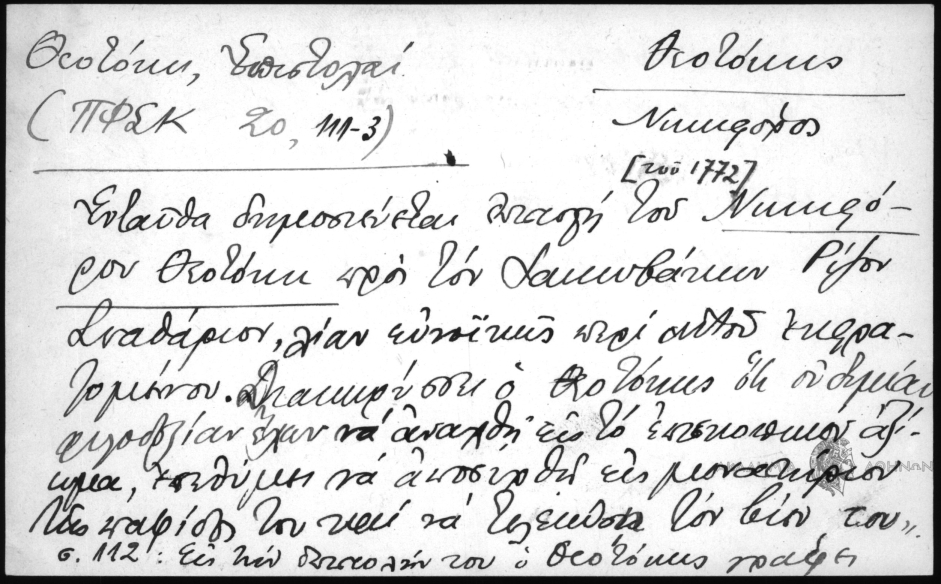 Θεοτόκη, Ἐπιστολαί
(ΠΦΣΚ 20, 111-3)
Θεοτόκης
Νικηφόρος
[τοῦ 1772]
Ἐνταῦθα δημοσιεύεται ἐπιστολή τοῦ Νικηφό-
ρου Θεοτόκη πρός τόν Ἰακωβάκην Ρίζον
Σπαθάριον, λίαν εὐνοϊκῶς περί αὐτοῦ ἐκφρα-
ζομένου. Διακηρύσσει ὁ Θεοτόκης ὅτι οὐδεμίαν
φιλοδοξίαν ἔχων νά ἀνέλθῃ εἰς τό ἐπισκοπικόν ἀξί-
ωμα, ἐπεθύμει νά ἀποσυρθῇ εἰς μοναστήριον
τῆς πατρίδος του καί νά τελειώσῃ τόν βίον του".
σ. 112: Εἰς τήν ἐπιστολήν του ὁ Θεοτόκης γράφει
ΑΘΗΝΩΝ